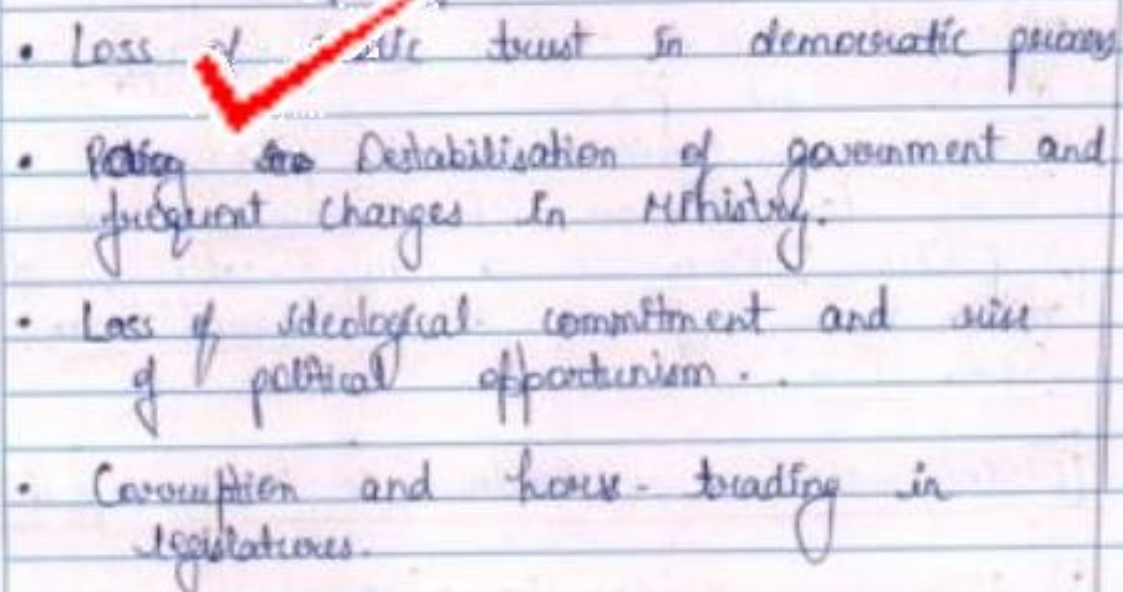 • Loss of trust in democratic
• Destabilisation of government and
frequent changes in Ministry.
• Loss of ideological commitment and rise
of political opportunism.
• Corruption and horse-trading in
legislatures.